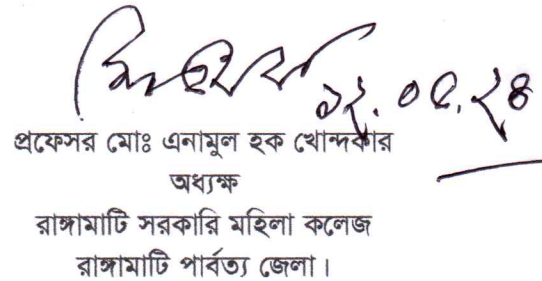 ১২.০৫.২৪
প্রফেসর মোঃ এনামুল হক খোন্দকার
অধ্যক্ষ
রাঙ্গামাটি সরকারি মহিলা কলেজ
রাঙ্গামাটি পার্বত্য জেলা।